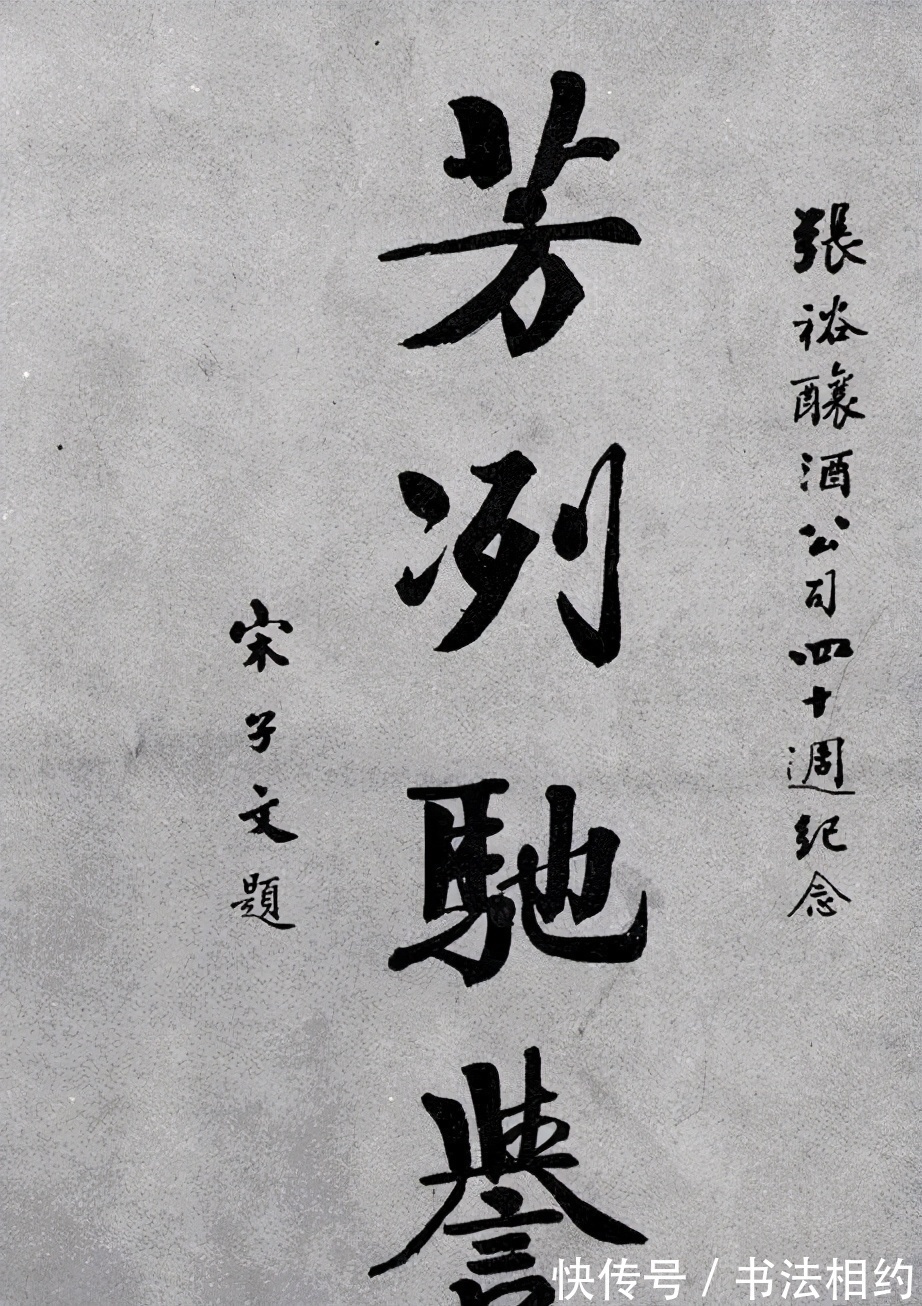 張裕釀酒公司四十週紀念
芳冽馳譽
宋子文題
快传号 / 书法相约